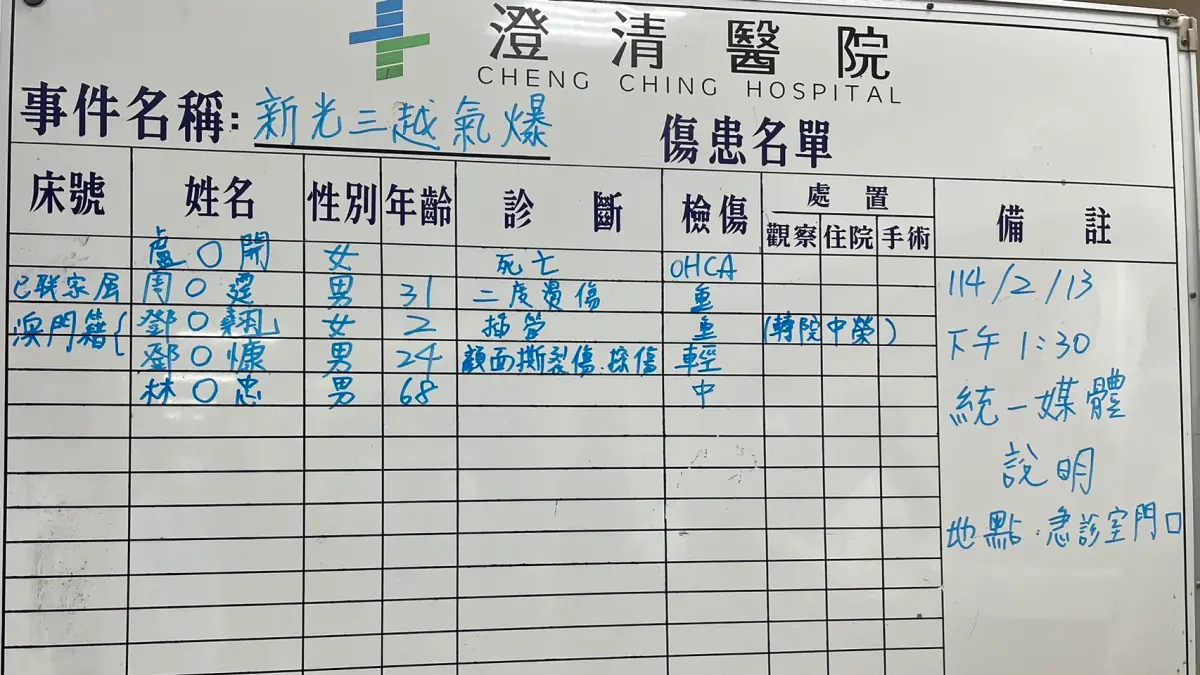 澄清醫院
CHENG CHING HOSPITAL
事件名稱: 新光三越氣爆 傷患名單
床號 姓名 性別 年齡 診斷 檢傷 處置 備註
觀察 住院 手術
盧〇開 女 死亡 OHCA
已聯家屬 周〇霆 男 31 二度燙傷 重
澳門籍{ 鄧〇翹 女 2 插管 重 (轉院中榮)
鄧〇慷 男 24 顏面撕裂傷.擦傷 輕
林〇忠 男 68 中
114/2/13
下午 1:30
統一媒體
說明
地點:急診室門口